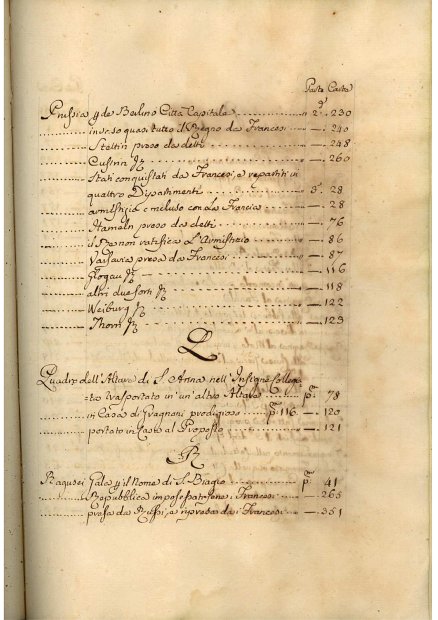 Parte Carta
Prussia, e de Berlino Città Capitale 2. 230
invaso quasi tutto il Regno da Francesi 240
Stettin preso da detti 248
Custrin 260
Stati conquistati da Francesi, e repartiti in
quattro Dipartimenti 28
Armistizio concluso con La Francia 28
Hameln preso da detti 76
il Re non ratifica L'Armistizio 86
Varsavia presa da Francesi 87
Glogau 116
altri due forti 118
122
Thorn 123
Q
Quadro dell'Altare di S. Anna nell'Insigne Colleg
ta trasportato in un'altro Altare p. 78
in Casa di Gragnani prodigioso p. 116. 120
portato in Casa al Proposto 121
R
Ragusei Gala p il Nome di S. Biagio p. 41
Repubblica Francesi 265
presa da Russi, e ripresa da i Francesi 351